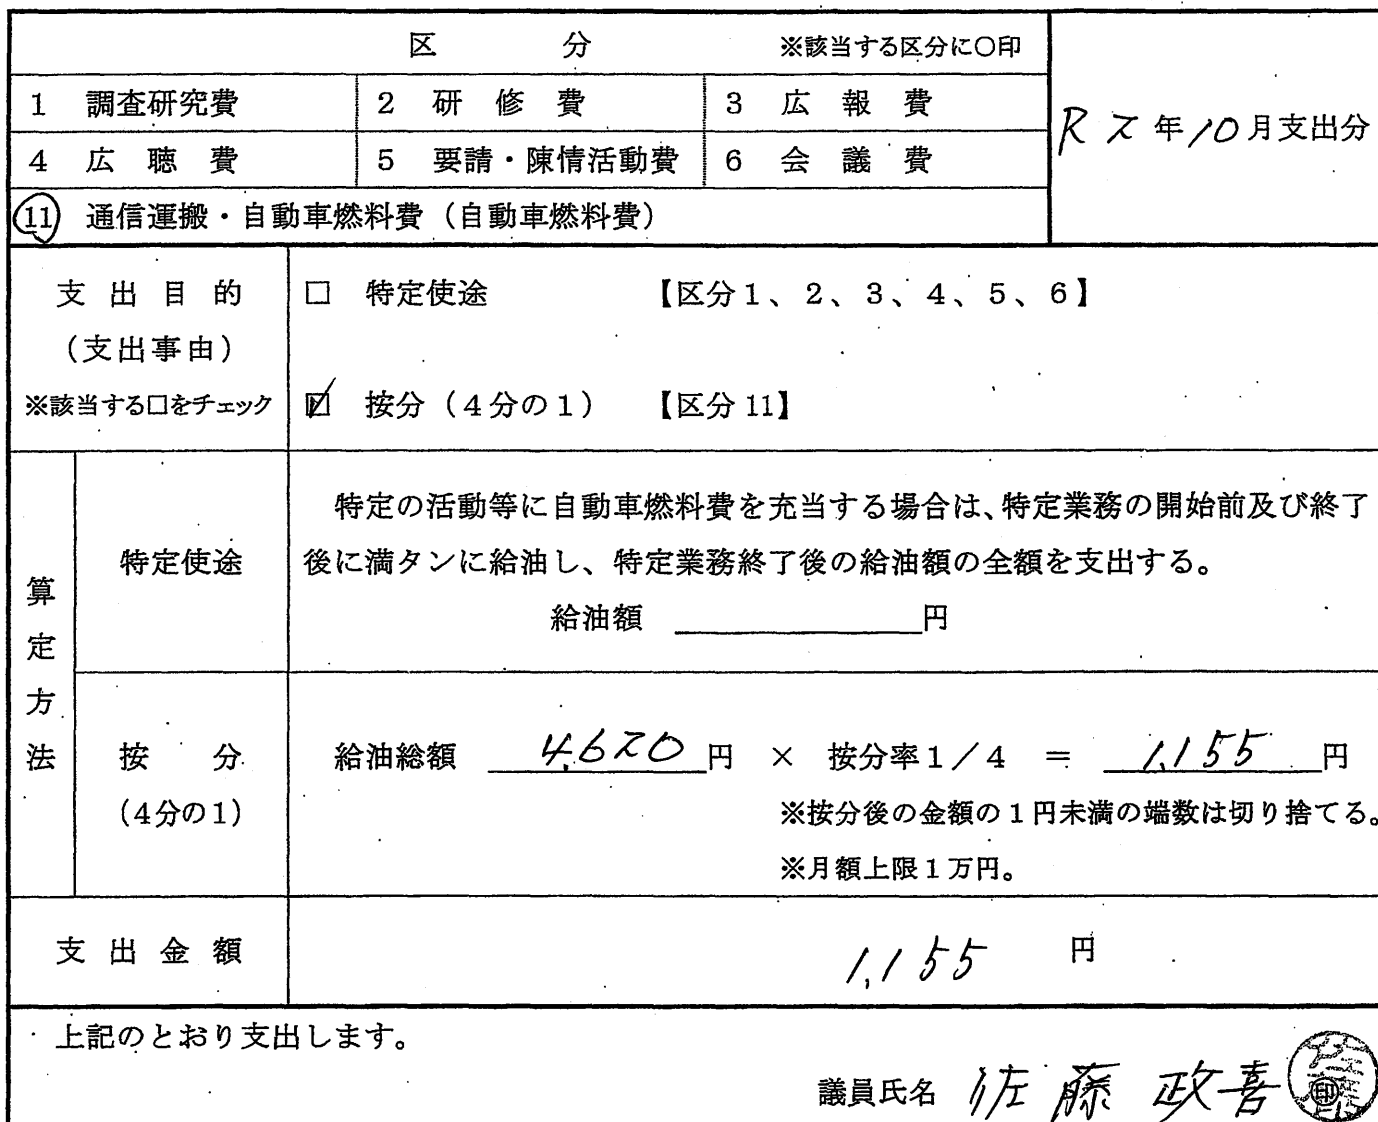 区　　　　分　　　　※該当する区分に〇印
1　調査研究費　2　研　修　費　3　広　報　費
R2年10月支出分
4　広　聴　費　5　要請・陳情活動費　6　会　議　費
11　通信運搬・自動車燃料費（自動車燃料費）
支 出 目 的
（支出事由）
※該当する□をチェック
□　特定使途　　　　【区分1、2、3、4、5、6】
☑　按分（4分の1）　【区分11】
算定方法
特定使途
特定の活動等に自動車燃料費を充当する場合は、特定業務の開始前及び終了
後に満タンに給油し、特定業務終了後の給油額の全額を支出する。
給油額　　　　　　　円
按　　分
（4分の1）
給油総額　4,620円　×　按分率1／4　＝　1,155円
※按分後の金額の1円未満の端数は切り捨てる。
※月額上限1万円。
支 出 金 額　　1,155　円
上記のとおり支出します。
議員氏名　佐藤 政喜　印